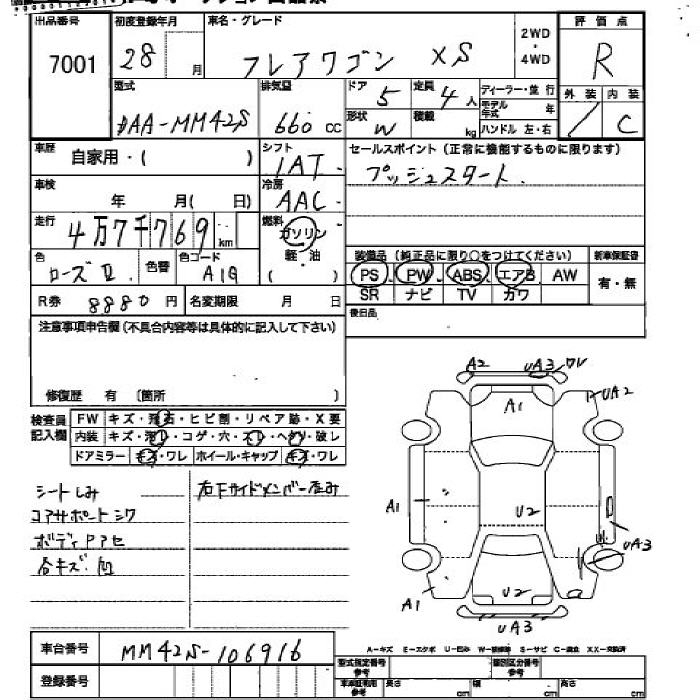 出品番号 初度登録年月 車名・グレード 2WD・4WD 評価点
7001 28 月 フレアワゴン XS R
型式 排気量 ドア 定員 ディーラー・並行 外装 内装
DAA-MM42S 660 CC 5 4人 モデル年式 年 / C
形状 W 積載 kg ハンドル 左・右
車歴 自家用・( ) シフト IAT セールスポイント (正常に機能するものに限ります)
車検 年 月( 日) 冷房 AAC プッシュスタート
走行 4万7千769 km 燃料 ガソリン 軽・油 ( )
色 ローズⅡ 色替 色コード A1Q
装備品 (純正品に限り○をつけてください) 新車保証書
PS PW ABS エアB AW 有・無
SR ナビ TV カワ
R券 8880 円 名変期限 月 日
後日品
注意事項申告欄(不具合内容等は具体的に記入して下さい)
修復歴 有 〔箇所 〕
検査員記入欄 FW キズ・飛石・ヒビ割・リペア跡・X要
内装 キズ・汚レ・コゲ・穴・スレ・ヘタリ・破レ
ドアミラー キズ・ワレ ホイール・キャップ キズ・ワレ
シートしみ 右下サイドメンバー歪み
コアサポートシワ
ボディPアセ
各キズ・凹
A2 UA3 ワレ
A1 UA2
A1 U2 UA3
A1 U2
UA3
車台番号 MM42S-106916
登録番号
A-キズ E-エクボ U-凹み S-サビ C-腐食 XX-交換済
型式指定番号 参考 類別区分番号 参考
長さ cm 幅 cm 高さ cm